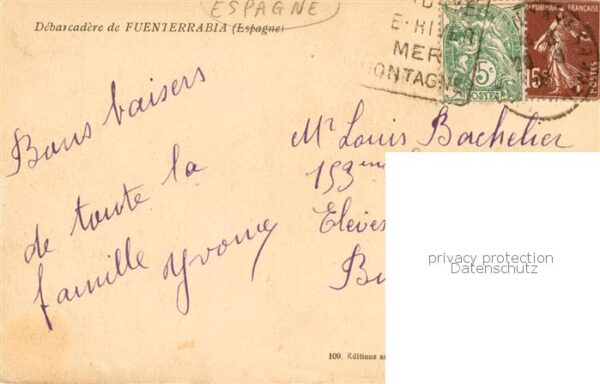 ESPAGNE
Débarcadère de FUENTERRABIA (Espagne)
E-HIVER
MER
MONTAGNE
5c
POSTES
REPUBLIQUE FRANÇAISE
15c
POSTES
Bons baisers
de toute la
famille Yvonne
Mr Louis Bachelier
153eme
Elèves
109. Editions
privacy protection
Datenschutz